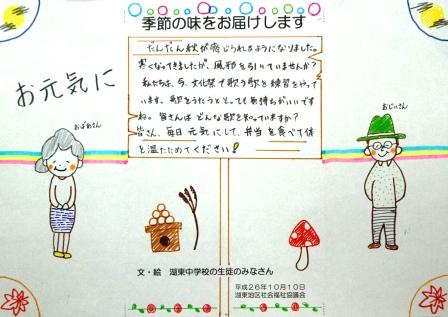 季節の味をお届けします
だんだん秋が感じられるようになりました。
寒くなってきましたが、風邪をひいていませんか?
私たちは、今、文化祭で歌う歌を練習をやって
います。歌をうたうととっても気持ちがいいです
ね。皆さんはどんな歌を知っていますか?
皆さん、毎日元気にして、弁当を食べて体
を温たためてください!
お元気に
おばあさん
おじいさん
文・絵 湖東中学校の生徒のみなさん
平成26年10月10日
湖東地区社会福祉協議会